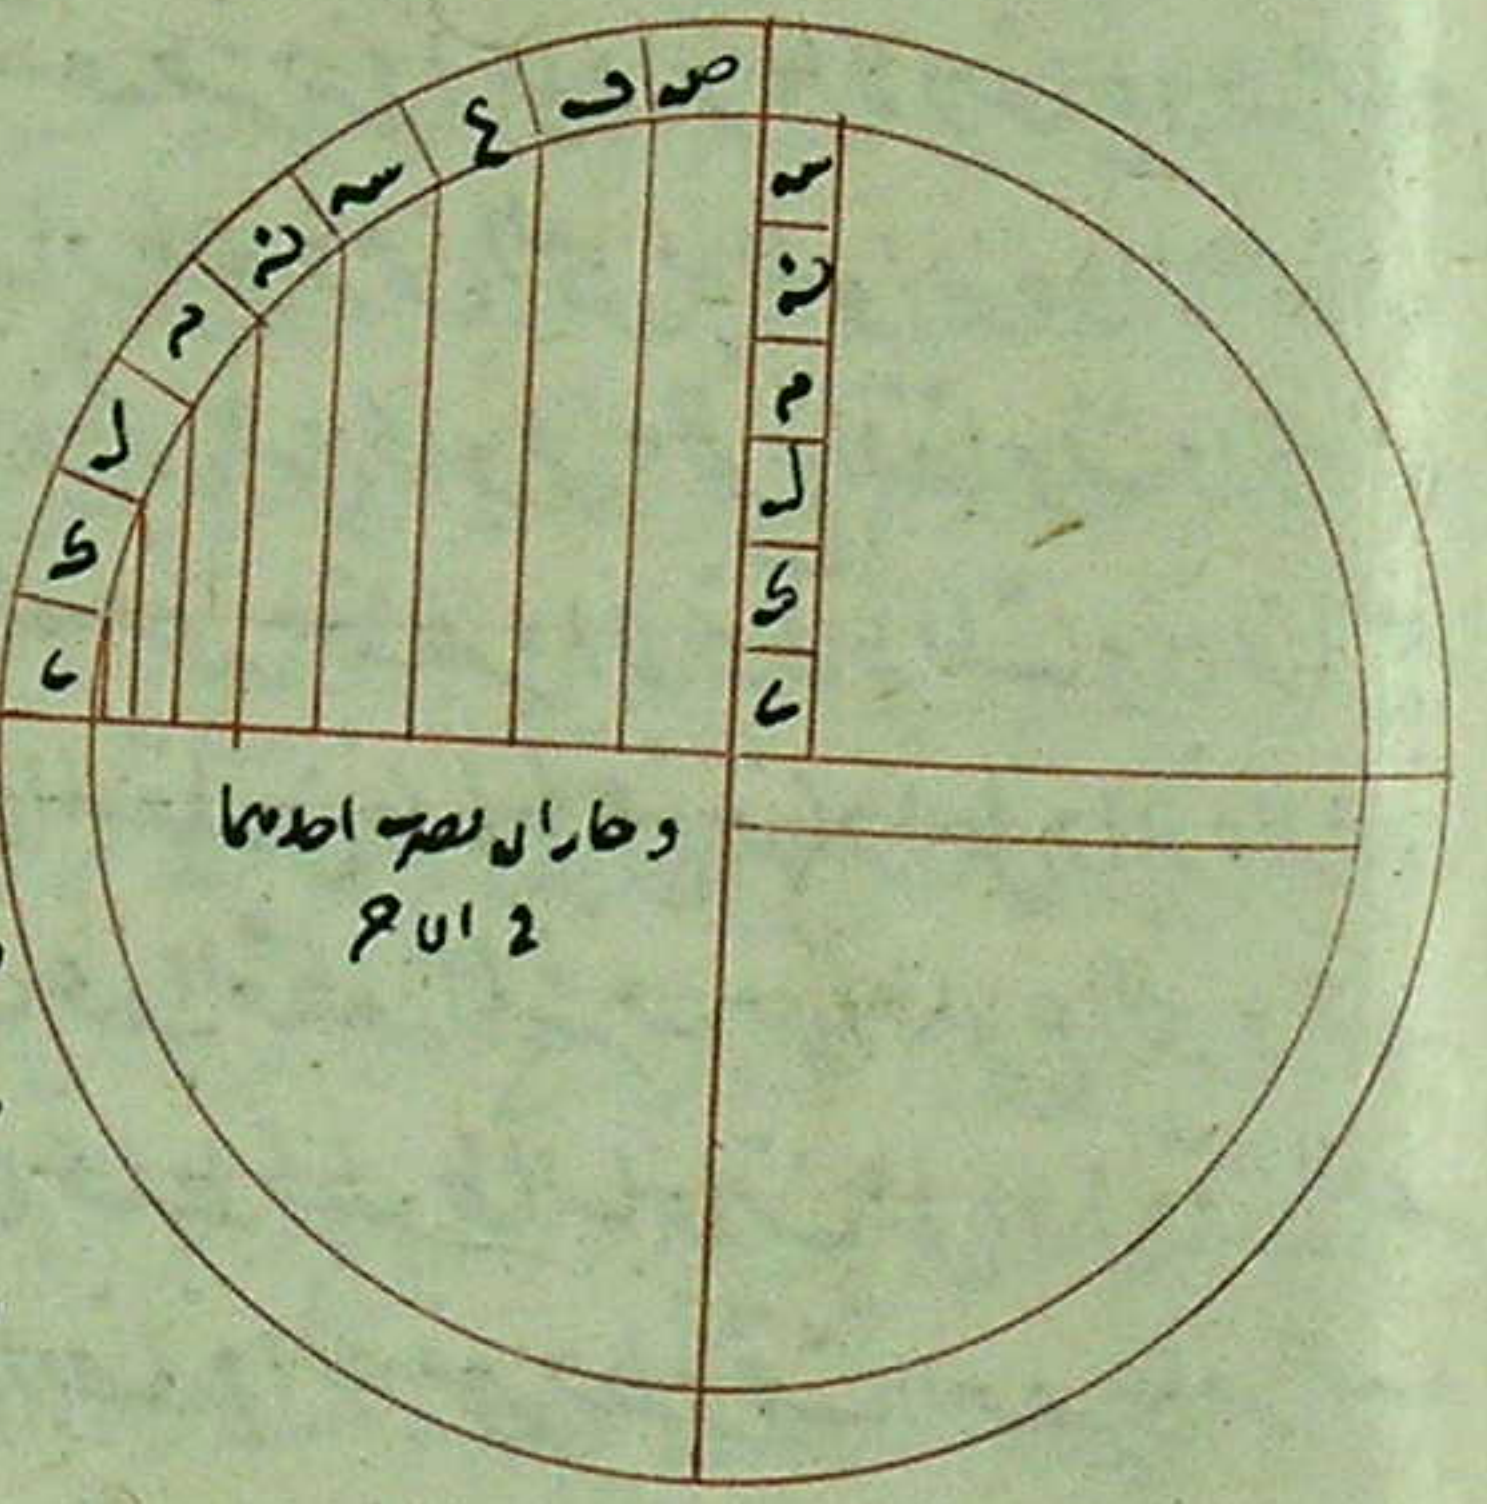 ص ف ع س ن م ل ك ى
س
ن
م
ل
ك
ى
وجاز ان يضرب احدهما
في الاخر